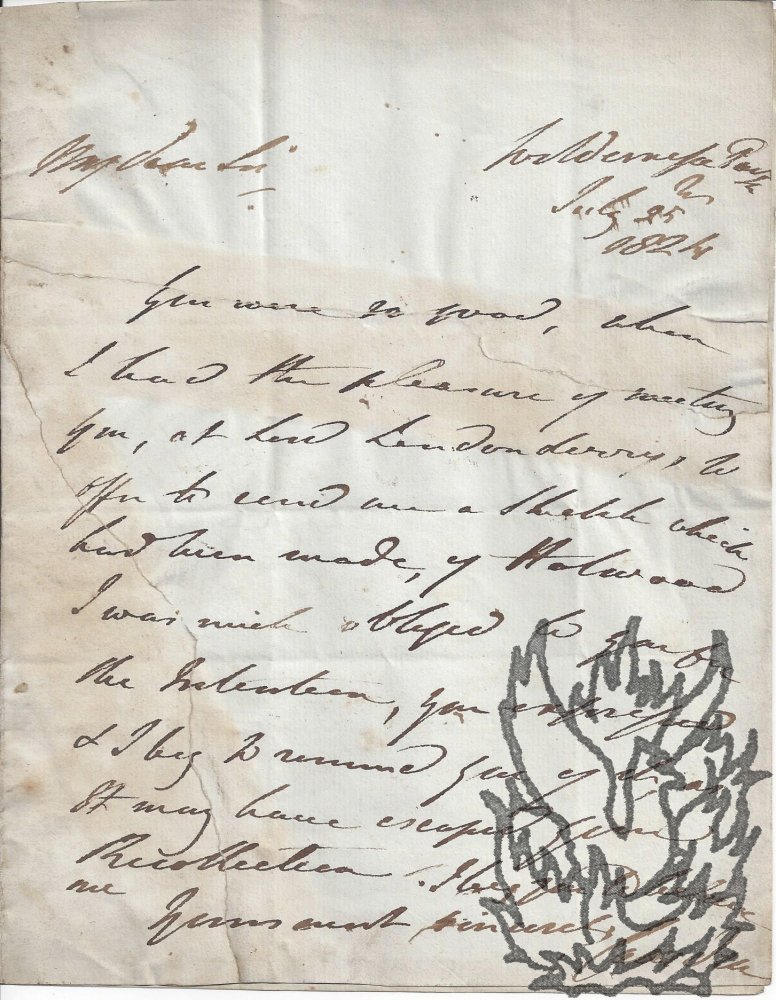 Wildernesse Park
My dear Sir
July 25
1824
You were so good, when
I had the pleasure of meeting
you, at Lord Londonderry's, to
offer to send me a Sketch which
had been made, of Holwood
I was much obliged to you for
the Intention, you expressed
& I beg to remind you of it, as
It may have escaped your
Recollection. I beg you to believe
me
Yours most sincerely
Camden